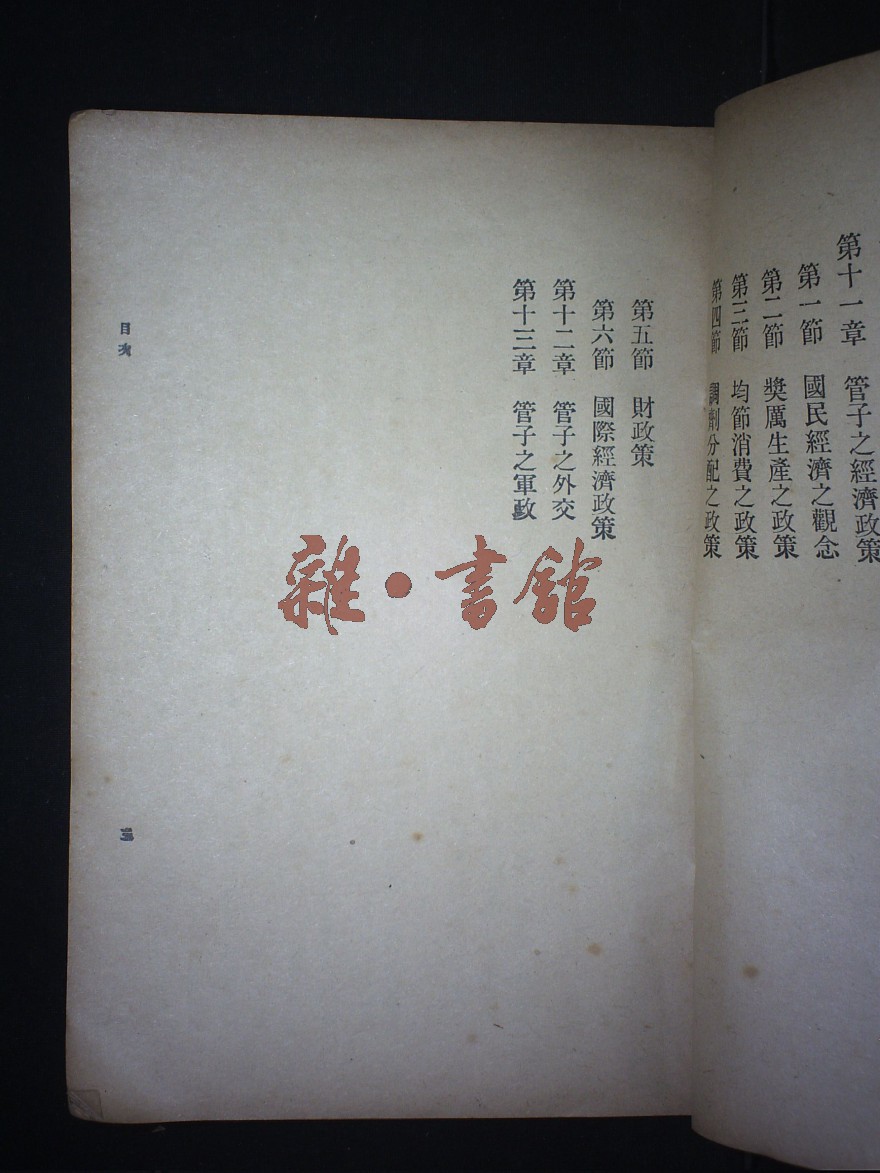 第十一章 管子之經濟政策
第一節 國民經濟之觀念
第二節 獎厲生產之政策
第三節 均節消費之政策
第四節 調劑分配之政策
第五節 財政策
第六節 國際經濟政策
第十二章 管子之外交
第十三章 管子之軍政
目次
三
雜·書館